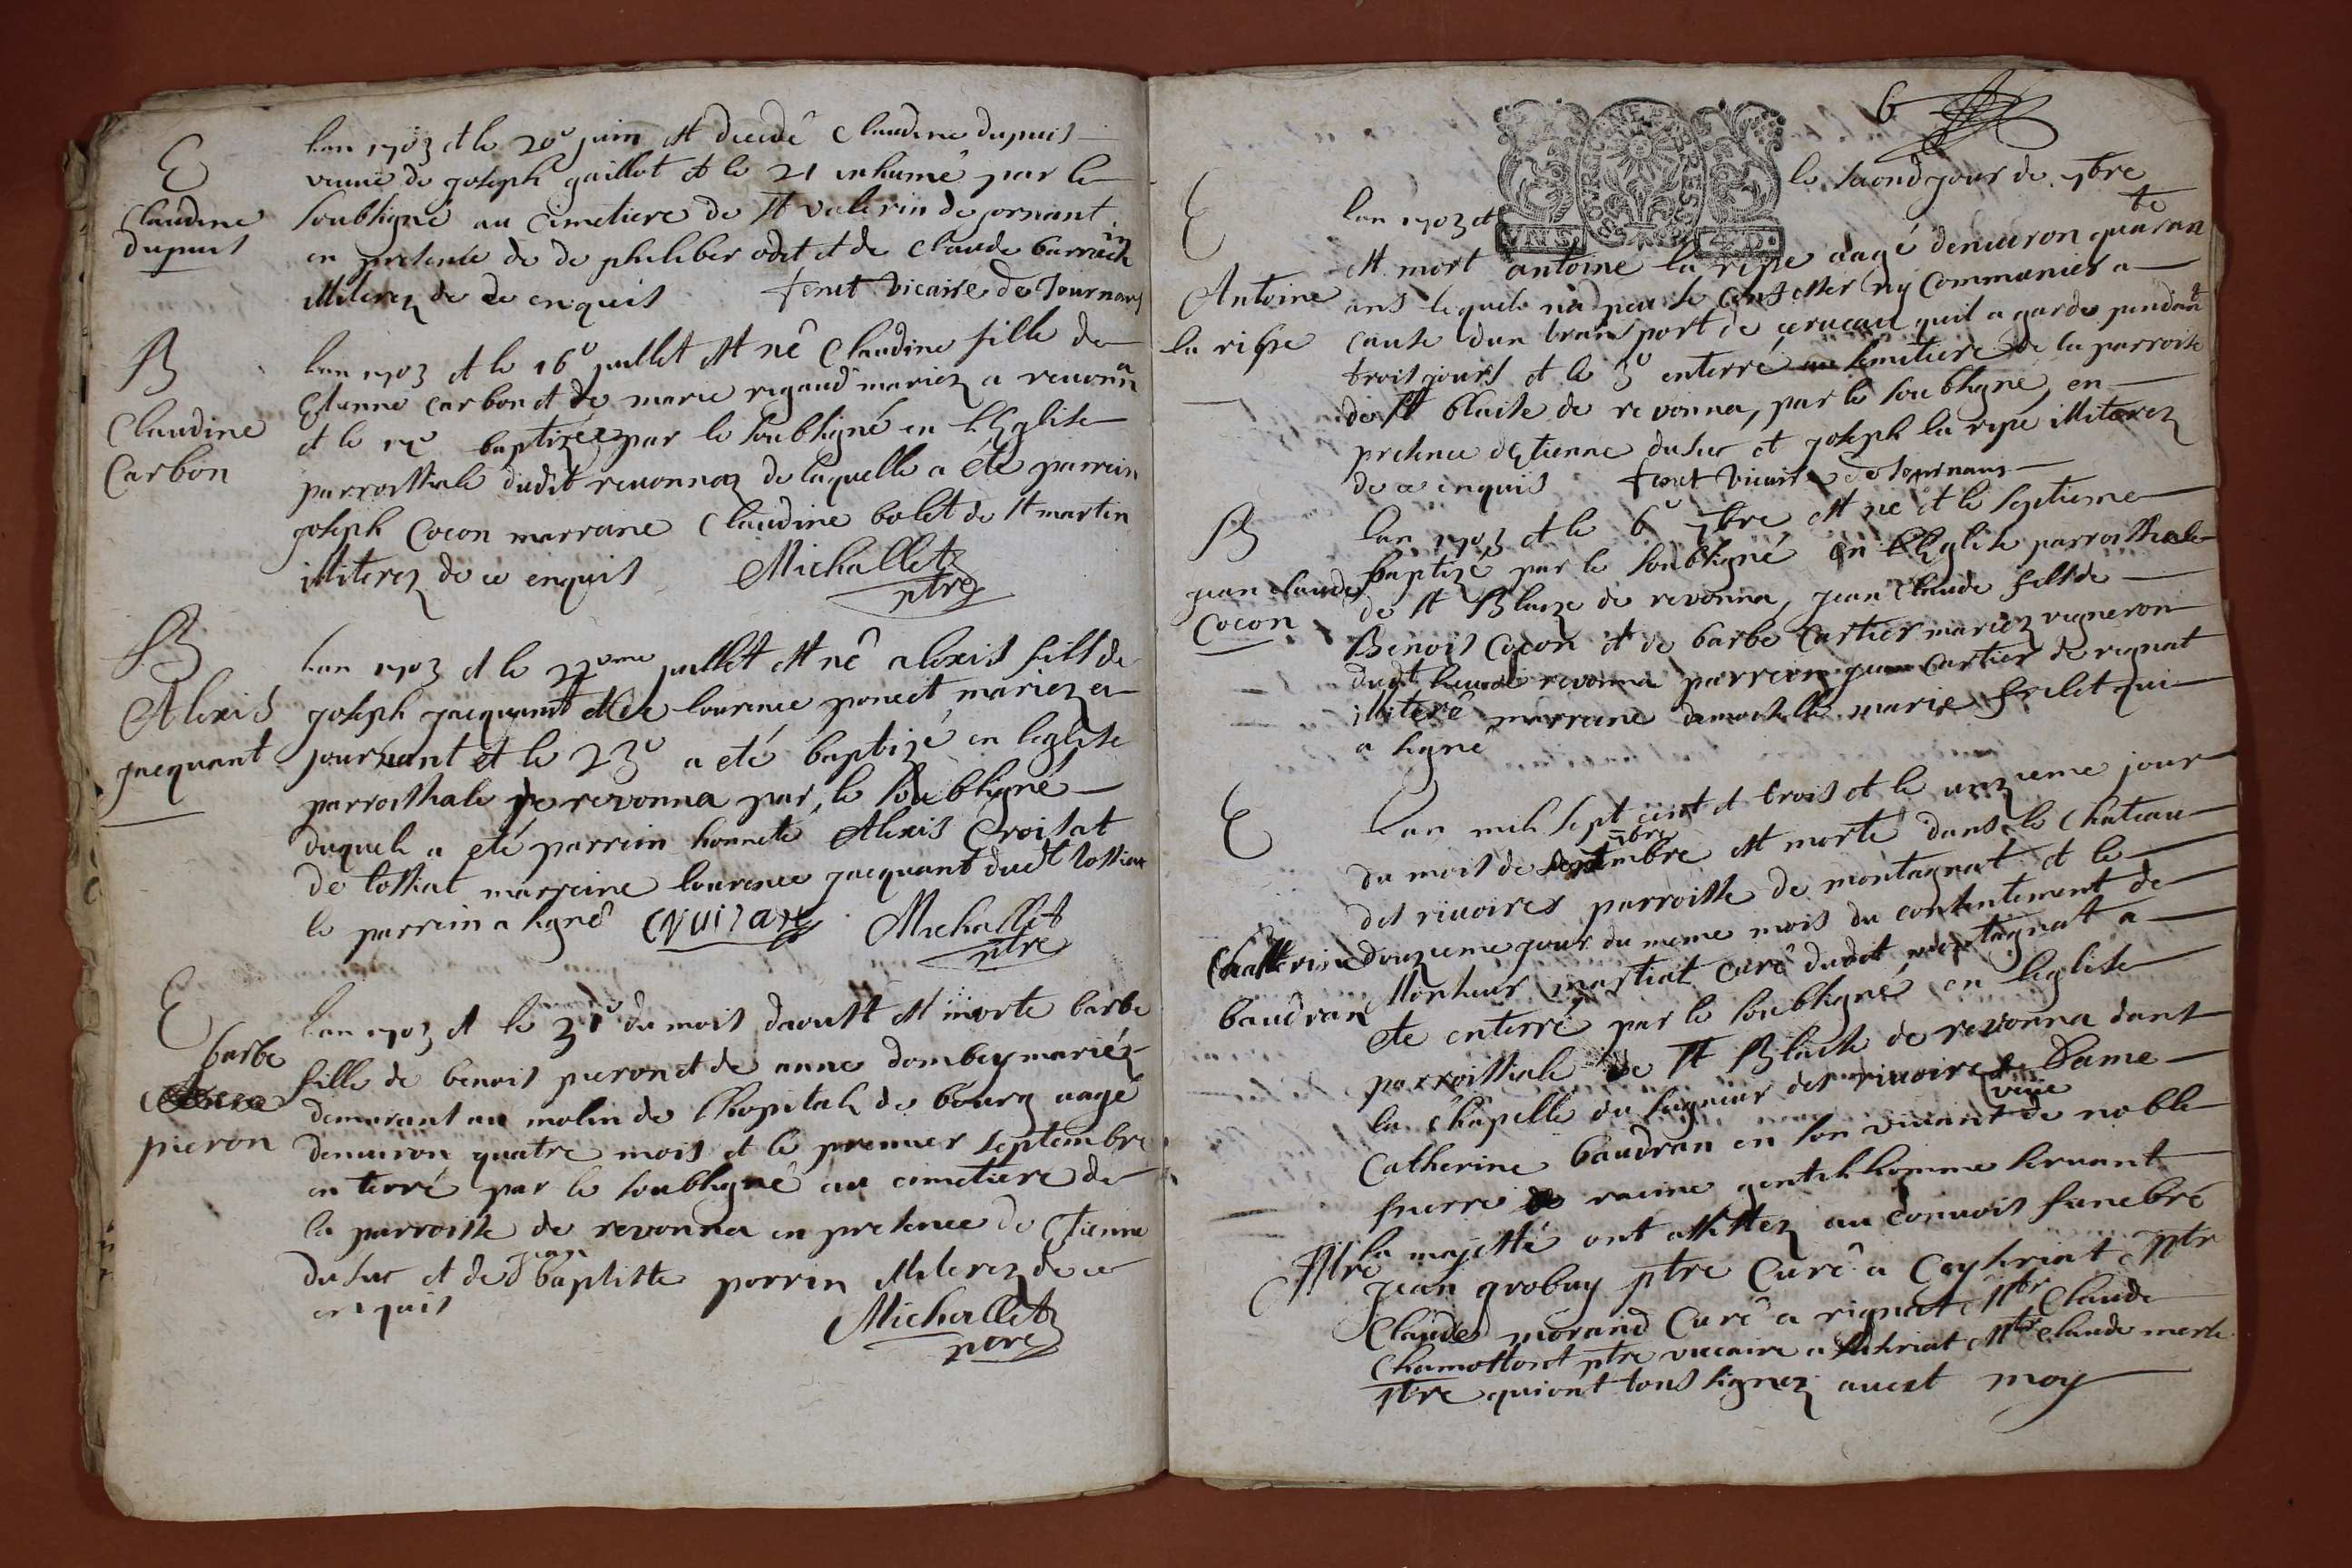 E
Claudine
dupuis
lan 1703 et le 20e juin est decedé Claudine dupuis
veuve de joseph gaillot et le 21 inhumé par le
soubsigné au cimetiere de st valerin de jornant
en presence de de philiber odet et de claude barrach
illiterez de ce enquis feret vicaire de Journans
B
Claudine
Carbon
lan 1703 et le 16e juillet est né Claudine fille de
Etienne carbon et de marie rigaud mariez a reuonna
et le 17e baptizée par le soubsigné en lEglise
parroissiale dudit reuonnaz de laquelle a été parrein
joseph Cocon marraine Claudine bolet de st martin
illiterez de ce enquis Michallet
ptre
B
Alexis
jacquant
lan 1703 et le 22eme juillet est né alexis fils de
joseph jacquant et de lourence ponect mariez a
journant et le 23e a eté baptizé en leglise
parroissiale de revonna par le soubsigné
duquel a eté parrein honneté Alexis Croisat
de tossiat marreine lourence jacquant dudt tossiat
le parrein a signé Michallet
ptre
E
barbe
pieron
lan 1703 et le 31e du mois daoust est morte barbe
fille de benoit pieron et de anne dombey mariéz
demurant au molin de lhopital de bourg aagé
denuiron quatre mois et le premier septembre
enterré par le soubsigné au cimetiere de
la parroisse de revonna en presence de Etienne
du suc et de jean baptiste perrin illiterez de ce
enquis Michallet
ptre
6
E
Antoine
la rippe
lan 1703 et le second jour de 7bre
est mort antoine la rippe aagé denuiron quarante
ans lequel na peu se confesser ny communier a
cause dun transport de cerueau quil a gardé pendant
trois jours et le 3e enterré au semitiere de la parroisse
de st blaise de revonna, par le soubsigné, en
presence dEtienne du suc et joseph la ripe illiterez
de ce enquis feret vicaire de Journans
B
jean claude
Cocon
lan 1703 et le 6e 7bre est né et le septieme
baptizé par le soubsigné en lEglise parroissiale
de st Blaize de revonna, jean Claude fils de
Benoit Cocon et de barbe Cartier mariez vigneron
dudt lieu de revonna parrein jean cartier de rignat
illiteré marreine damoiselle marie frilet qui
a signé
E
Catherine
baudran
Lan mil sept cent et trois et le unzieme jour
du mois de septembre est morte dans le chateau
des riuoires parroisse de montagnat et le
douzieme jour du meme mois du consentement de
Monsieur martiat curé dudit montagnat a
ete enterré par le soubsigné en leglise
parroissiale de st Blaise de revonna dans
la chapelle du seigneur des riuoires Dame
Catherine baudran en son viuant veuue de noble
pierre de racine gentilhomme seruant
sa majesté ont assistez au conuois funebre
Mre jean grobuy ptre Curé a Ceyseriat Mre
Claude morand Curé a rignat Mre Claude
Chamottont ptre viccaire a Mre Claude merle
ptre qui ont tous signez auect moy